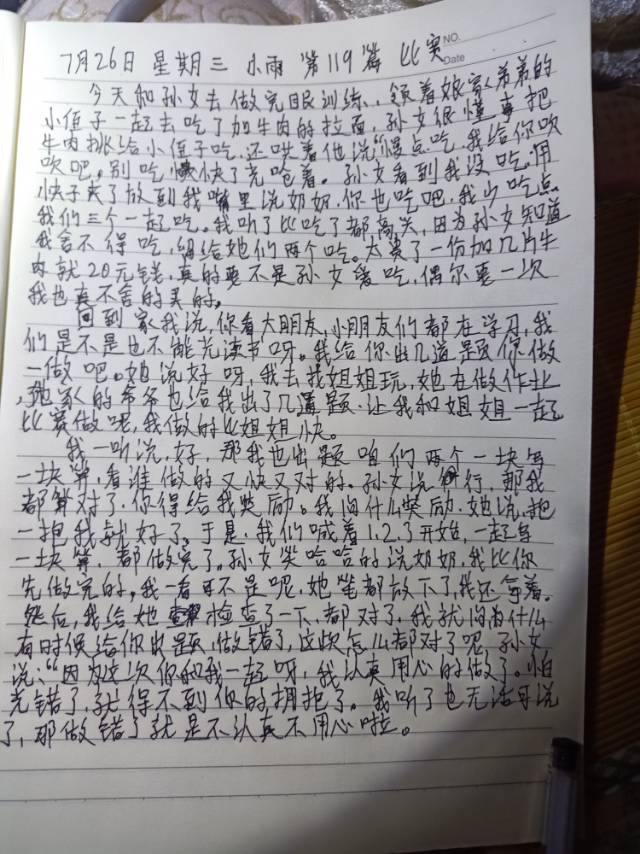 7月26日 星期三 小雨 第119篇 比赛
NO.
Date
今天和孙女去做完眼训练,领着娘家弟弟的
小侄子一起去吃了加牛肉的拉面,孙女很懂事把
牛肉挑给小侄子吃,还哄着他说"慢点吃,我给你吹
吹吧。别吃快了克呛着。孙女看到我没吃,用
快子夹了放到我嘴里说奶奶,你也吃吧,我少吃点
我们三个一起吃。我听了比吃了都高兴,因为孙女知道
我舍不得吃,留给她们两个吃。太贵了一份加几片牛
肉就20元钱,真的要不是孙女爱吃,偶尔要一次
我也真不舍的买的。
回到家我说,你看大朋友,小朋友们都在学习,我
们是不是也不能光读书呀。我给你出几道题你做
一做吧。她说好呀,我去找姐姐玩,她在做作业
,她家的爷爷也给我出了几道题.让我和姐姐一起
比赛做呢,我做的比姐姐快。
我一听说,好,那我也出题咱们两个一块写
一块算,看谁做的又快又对的。孙女说行,那我
都算对了.你得给我奖励。我问什么奖励.她说,抱
一抱我就好了。于是.我们喊着1.2.3开始,一起写
一块算,都做完了。孙女笑哈哈的说奶奶,我比你
先做完的。我一看可不是呢,她笔都放下了,我还拿着。
然后,我给她检查了一下,都对了.我就问为什么
有时候给你出题,做错了,这次怎么都对了呢,孙女
说:"因为这次你和我一起呀,我认真用心的做了。怕
克错了,就得不到你的拥抱了。我听了也无话可说
了,那做错了就是不认真不用心啦。